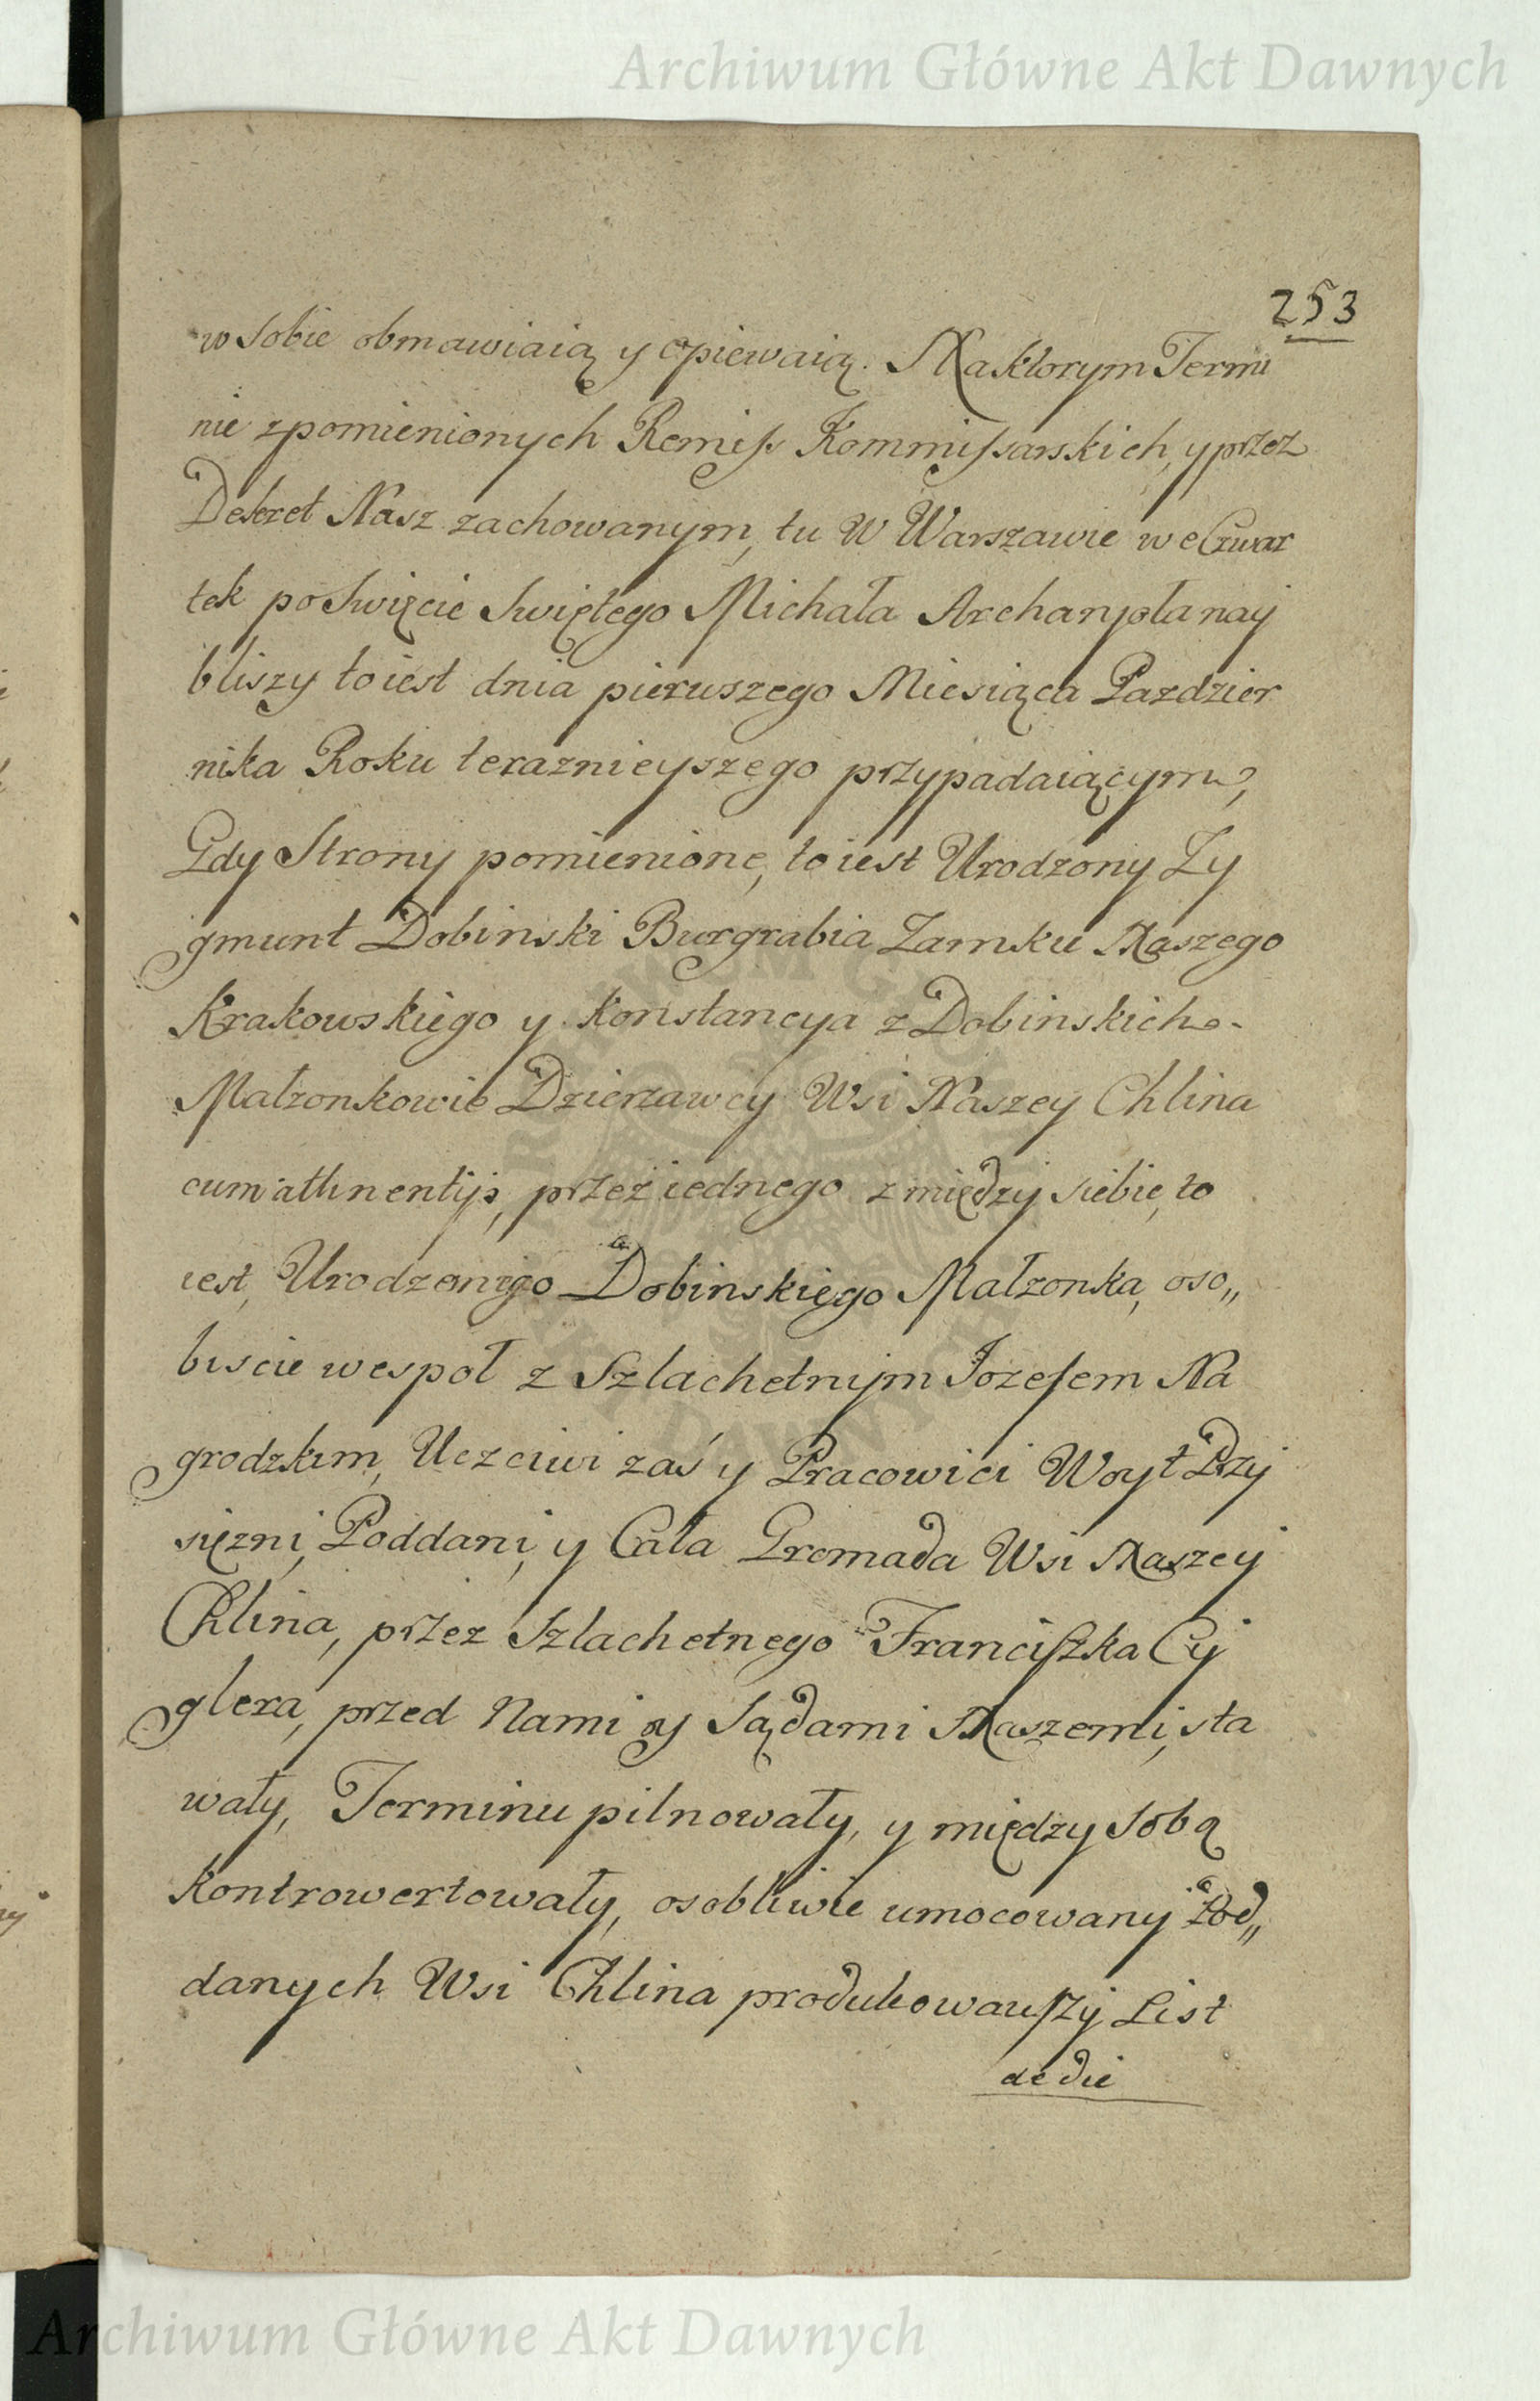 Archiwum Główne Akt Dawnych
253
w sobie obmawiaią y opiewaią. Na ktorym Termi
nie zpomienionych Remiss Kommissarskich, y przez
Dekret Nasz zachowanym, tu w Warszawie we Czwar
tek po Swięcie Swiętego Michała Archanyoła nay
bliszy to iest dnia pierwszego Miesiąca Pazdzier
nika Roku teraznieyszego przypadaiącym,
Gdy Strony pomienione, to iest Urodzony Zy
gmunt Dobinski Burgrabia Zamku Naszego
Krakowskiego y Konstancya z Dobinskich
Małzonkowie Dzierzawcy Wsi Naszey Chlina
cum attinentijs, przez iednego z między siebie, to
iest, Urodzonego Dobinskiego Małzonka, oso„
biscie wespoł z Szlachetnym Jozefem Na
grodzkim, Uczciwi zaś y Pracowici Woyt Przy
sięzni, Poddani, y Cała Gromada Wsi Naszey
Chlina, przez Szlachetnego Franciszka Cy
glera, przed Nami y Sądami Naszemi, sta
wały, Terminu pilnowały, y między sobą
Kontrowertowały, osobliwie umocowany Pod„
danych Wsi Chlina produkowawszy List
de die
Archiwum Główne Akt Dawnych